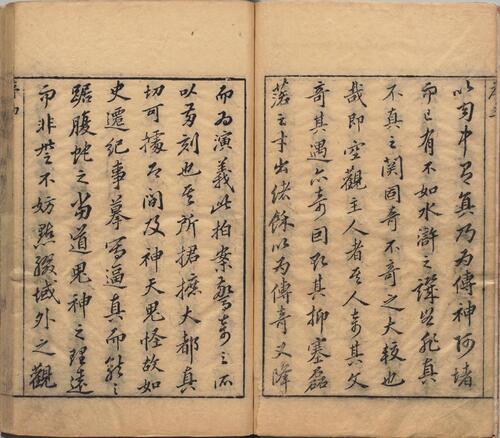 以幻中有真乃為傳神阿堵
而已有不如水滸之譏豈非真
不真之関固奇不奇之大較也
哉即空觀主人者其人奇其文
奇其遇亦奇因取其抑塞磊
落之才出緒餘以為傳奇又降
而為演義此拍案驚奇之所
以兩刻也其所捃摭大都真
切可據即間及神天鬼怪故如
史遷紀事摹寫逼真而龍之
踞腹蛇之當道鬼神之理遠
而非無不妨點綴域外之觀